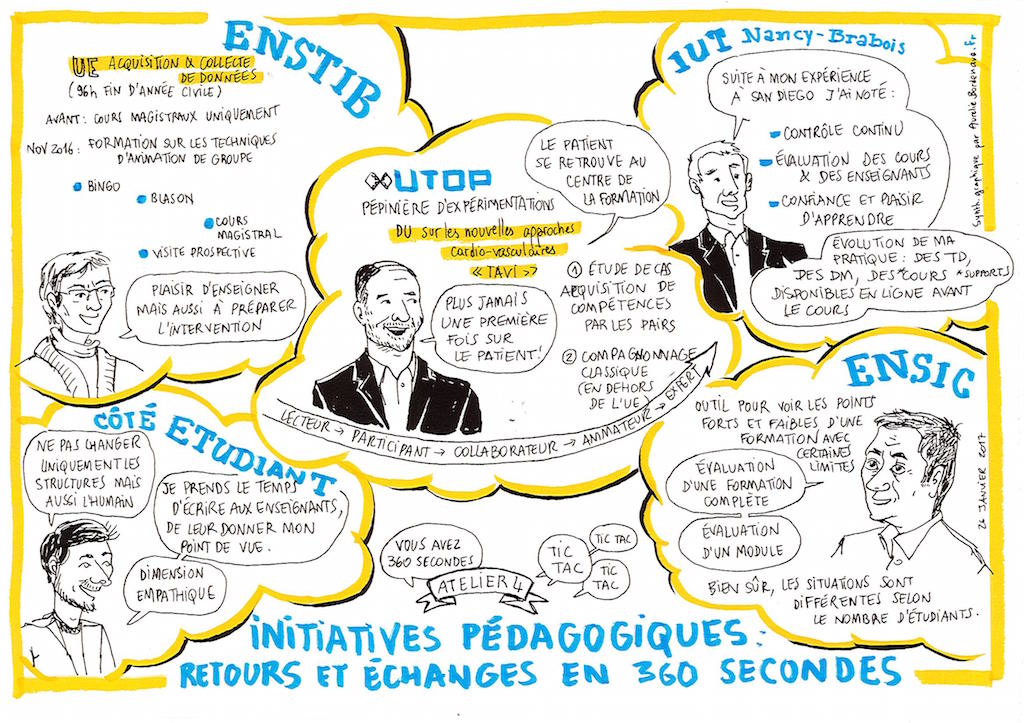 ENSTIB
UE ACQUISITION & COLLECTE
DE DONNÉES
(96h FIN D'ANNÉE CIVILE)
AVANT : COURS MAGISTRAUX UNIQUEMENT
NOV 2016 : FORMATION SUR LES TECHNIQUES
D'ANIMATION DE GROUPE
BINGO
BLASON
COURS
MAGISTRAL
VISITE PROSPECTIVE
PLAISIR D'ENSEIGNER
MAIS AUSSI À PRÉPARER
L'INTERVENTION
UTOP
PÉPINIÈRE D'EXPÉRIMENTATIONS
DU sur les nouvelles approches
cardio-vasculaires
« TAVI »
LE PATIENT
SE RETROUVE AU
CENTRE DE
LA FORMATION
PLUS JAMAIS
UNE PREMIÈRE
FOIS SUR
LE PATIENT !
1 ÉTUDE DE CAS
ACQUISITION DE
COMPÉTENCES
PAR LES PAIRS
2 COMPAGNONNAGE
CLASSIQUE
(EN DEHORS
DE L'UE)
LECTEUR → PARTICIPANT → COLLABORATEUR → AMMATEUR → EXPERT
IUT Nancy-Brabois
SUITE À MON EXPÉRIENCE
À SAN DIEGO J'AI NOTÉ :
CONTRÔLE CONTINU
ÉVALUATION DES COURS
& DES ENSEIGNANTS
CONFIANCE ET PLAISIR
D'APPRENDRE
ÉVOLUTION DE MA
PRATIQUE : DES TD,
DES DM, DES *COURS *SUPPORTS
DISPONIBLES EN LIGNE AVANT
LE COURS
Synth. graphique par Aurélie Bordenave.fr
CÔTÉ ETUDIANT
NE PAS CHANGER
UNIQUEMENT LES
STRUCTURES MAIS
AUSSI L'HUMAIN
JE PRENDS LE TEMPS
D'ÉCRIRE AUX ENSEIGNANTS,
DE LEUR DONNER MON
POINT DE VUE.
DIMENSION
EMPATHIQUE
ENSIC
OUTIL POUR VOIR LES POINTS
FORTS ET FAIBLES D'UNE
FORMATION AVEC
CERTAINES
LIMITES
ÉVALUATION
D'UNE FORMATION
COMPLÈTE
ÉVALUATION
D'UN MODULE
BIEN SÛR, LES SITUATIONS SONT
DIFFÉRENTES SELON
LE NOMBRE D'ÉTUDIANTS.
26 JANVIER 2017
VOUS AVEZ
360 SECONDES
ATELIER 4
TIC
TAC
TIC TAC
TIC
TAC
INITIATIVES PÉDAGOGIQUES :
RETOURS ET ÉCHANGES EN 360 SECONDES